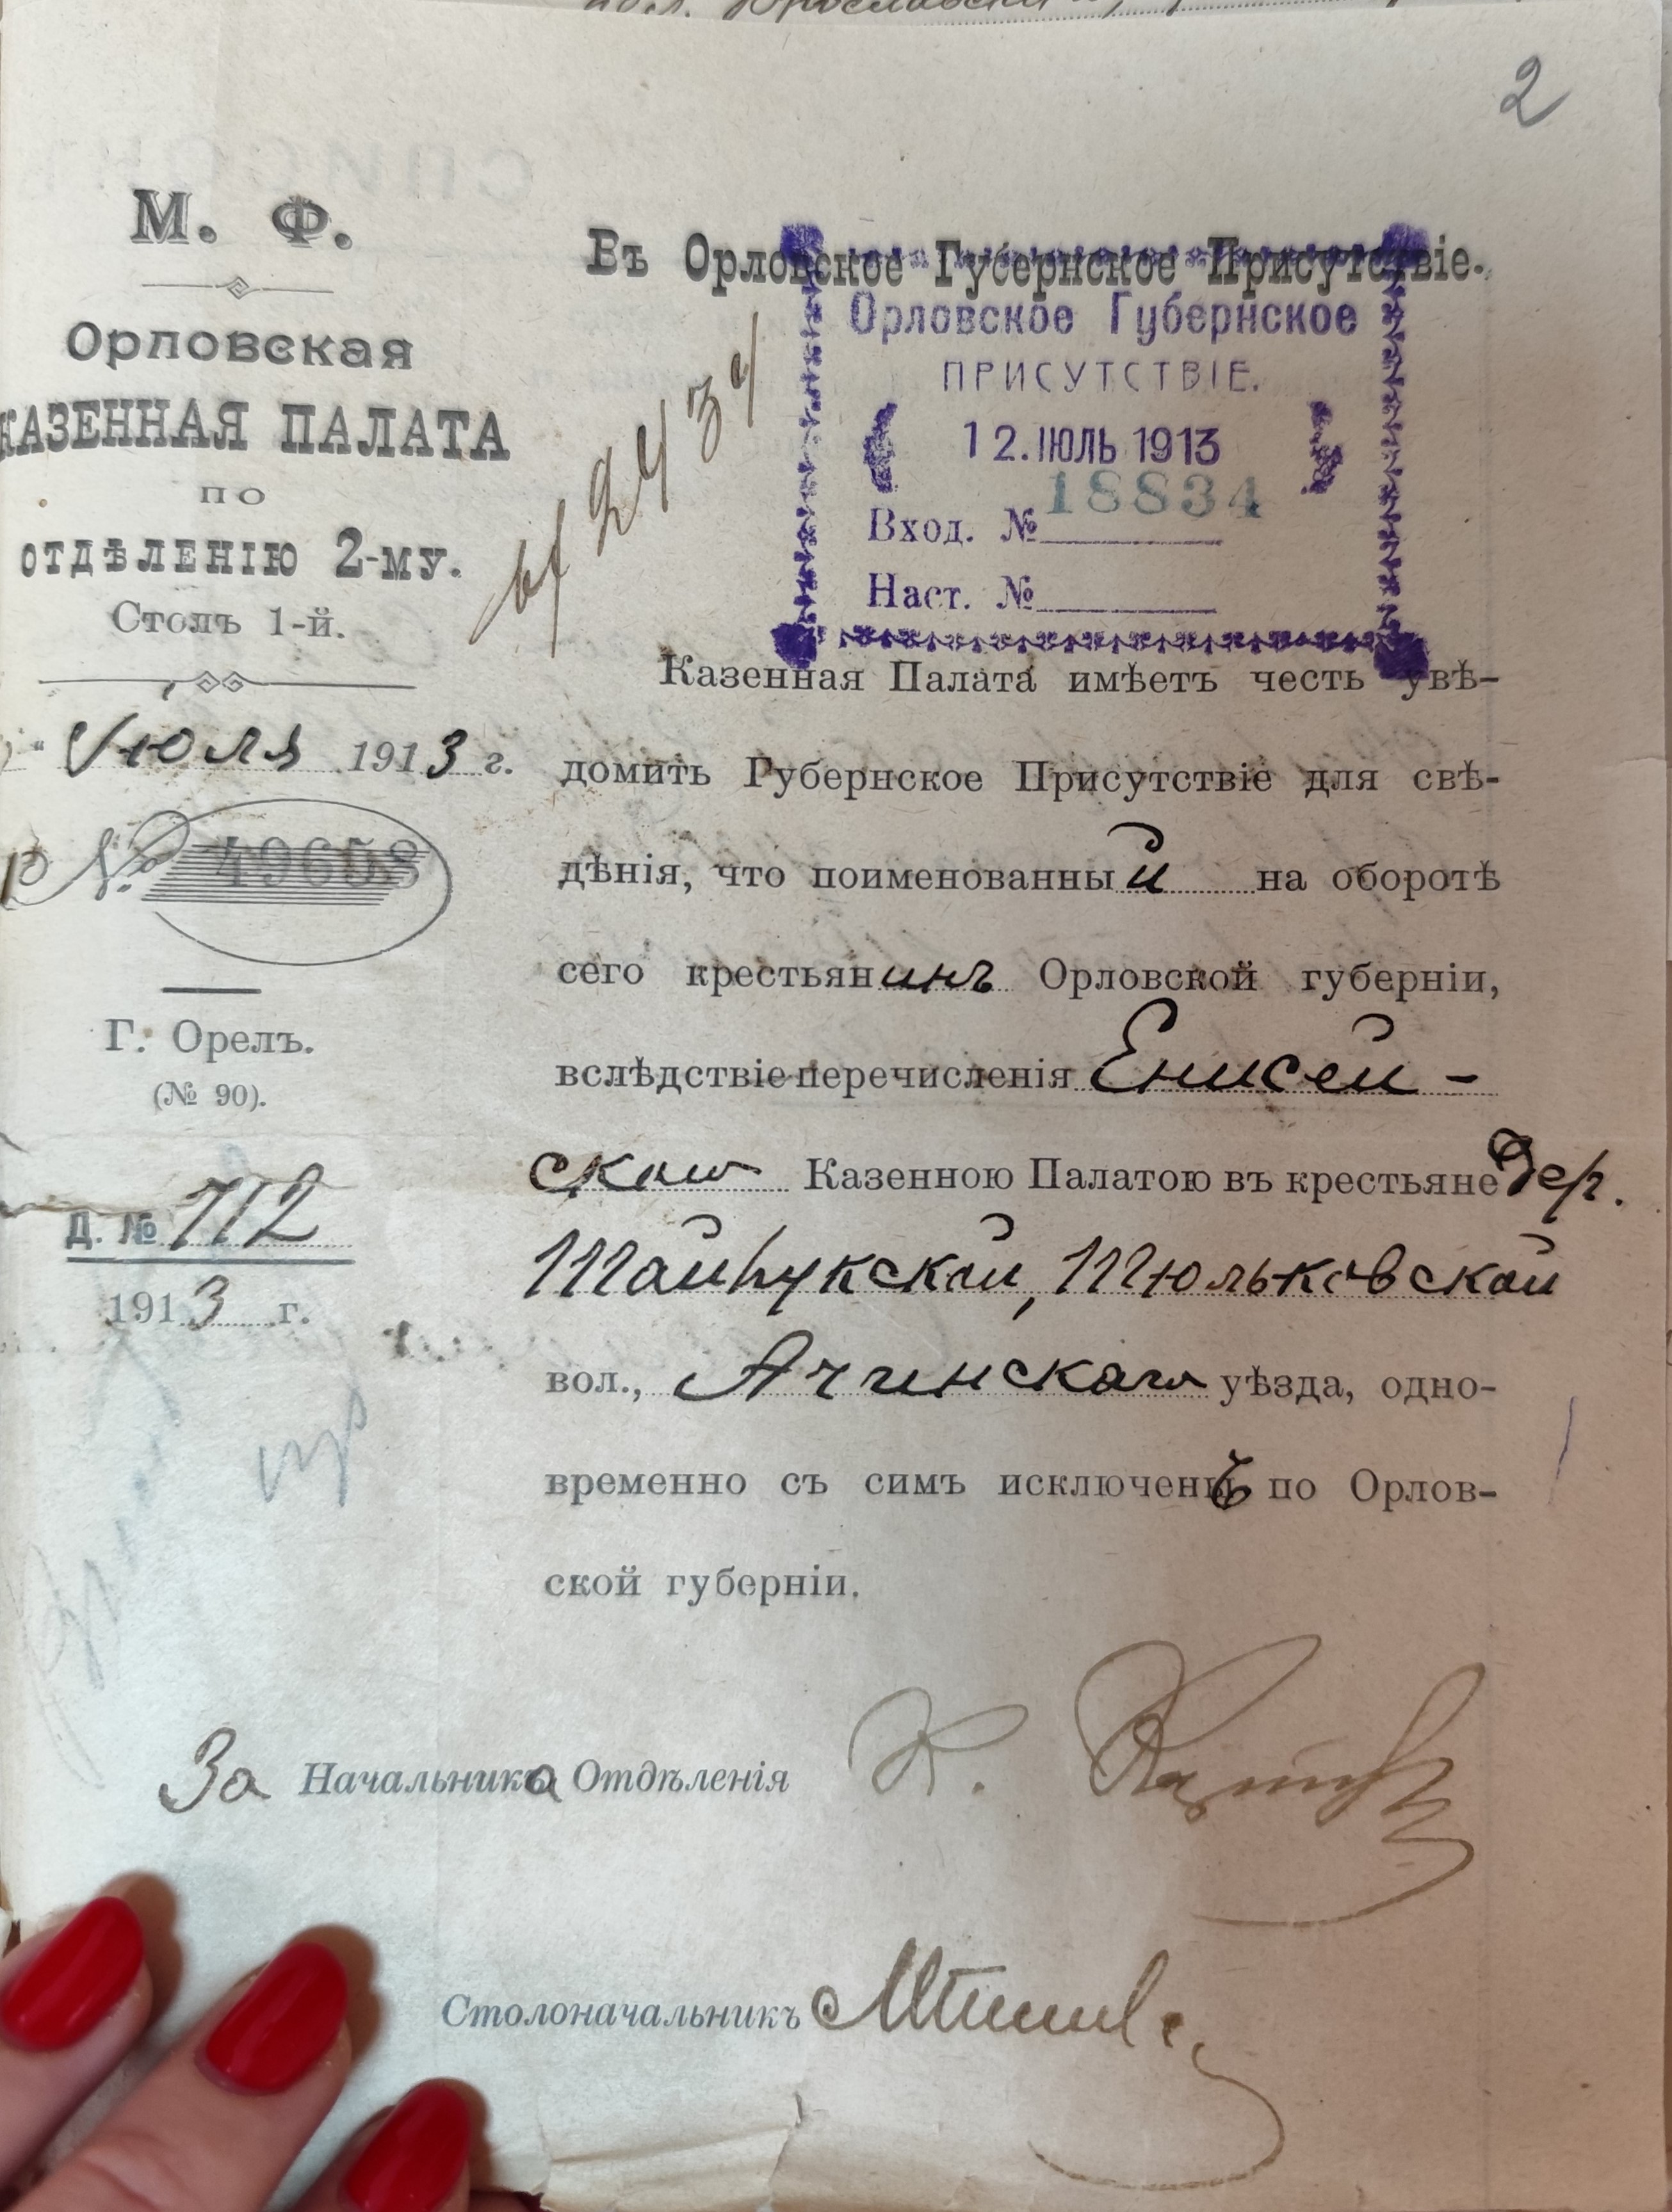 2
М. Ф.
Орловская
КАЗЕННАЯ ПАЛАТА
по
отдѣленію 2-му.
Столъ 1-й.
Іюля 1913 г.
№ 49658
Г. Орелъ.
(№ 90).
Д. № 712
1913 г.
Въ Орловское Губернское Присутствіе.
Орловское Губернское
ПРИСУТСТВІЕ.
12. ІЮЛЬ 1913
18834
Вход. №
Наст. №
Казенная Палата имѣетъ честь увѣ-
домить Губернское Присутствіе для свѣ-
дѣнія, что поименованный на оборотѣ
сего крестьянинъ Орловской губерніи,
вслѣдствіе перечисленія Енисей-
скою Казенною Палатою въ крестьяне дер.
Тюльковской
вол., Ачинскаго уѣзда, одно-
временно съ симъ исключенъ по Орлов-
ской губерніи.
За Начальника Отдѣленія
Столоначальникъ